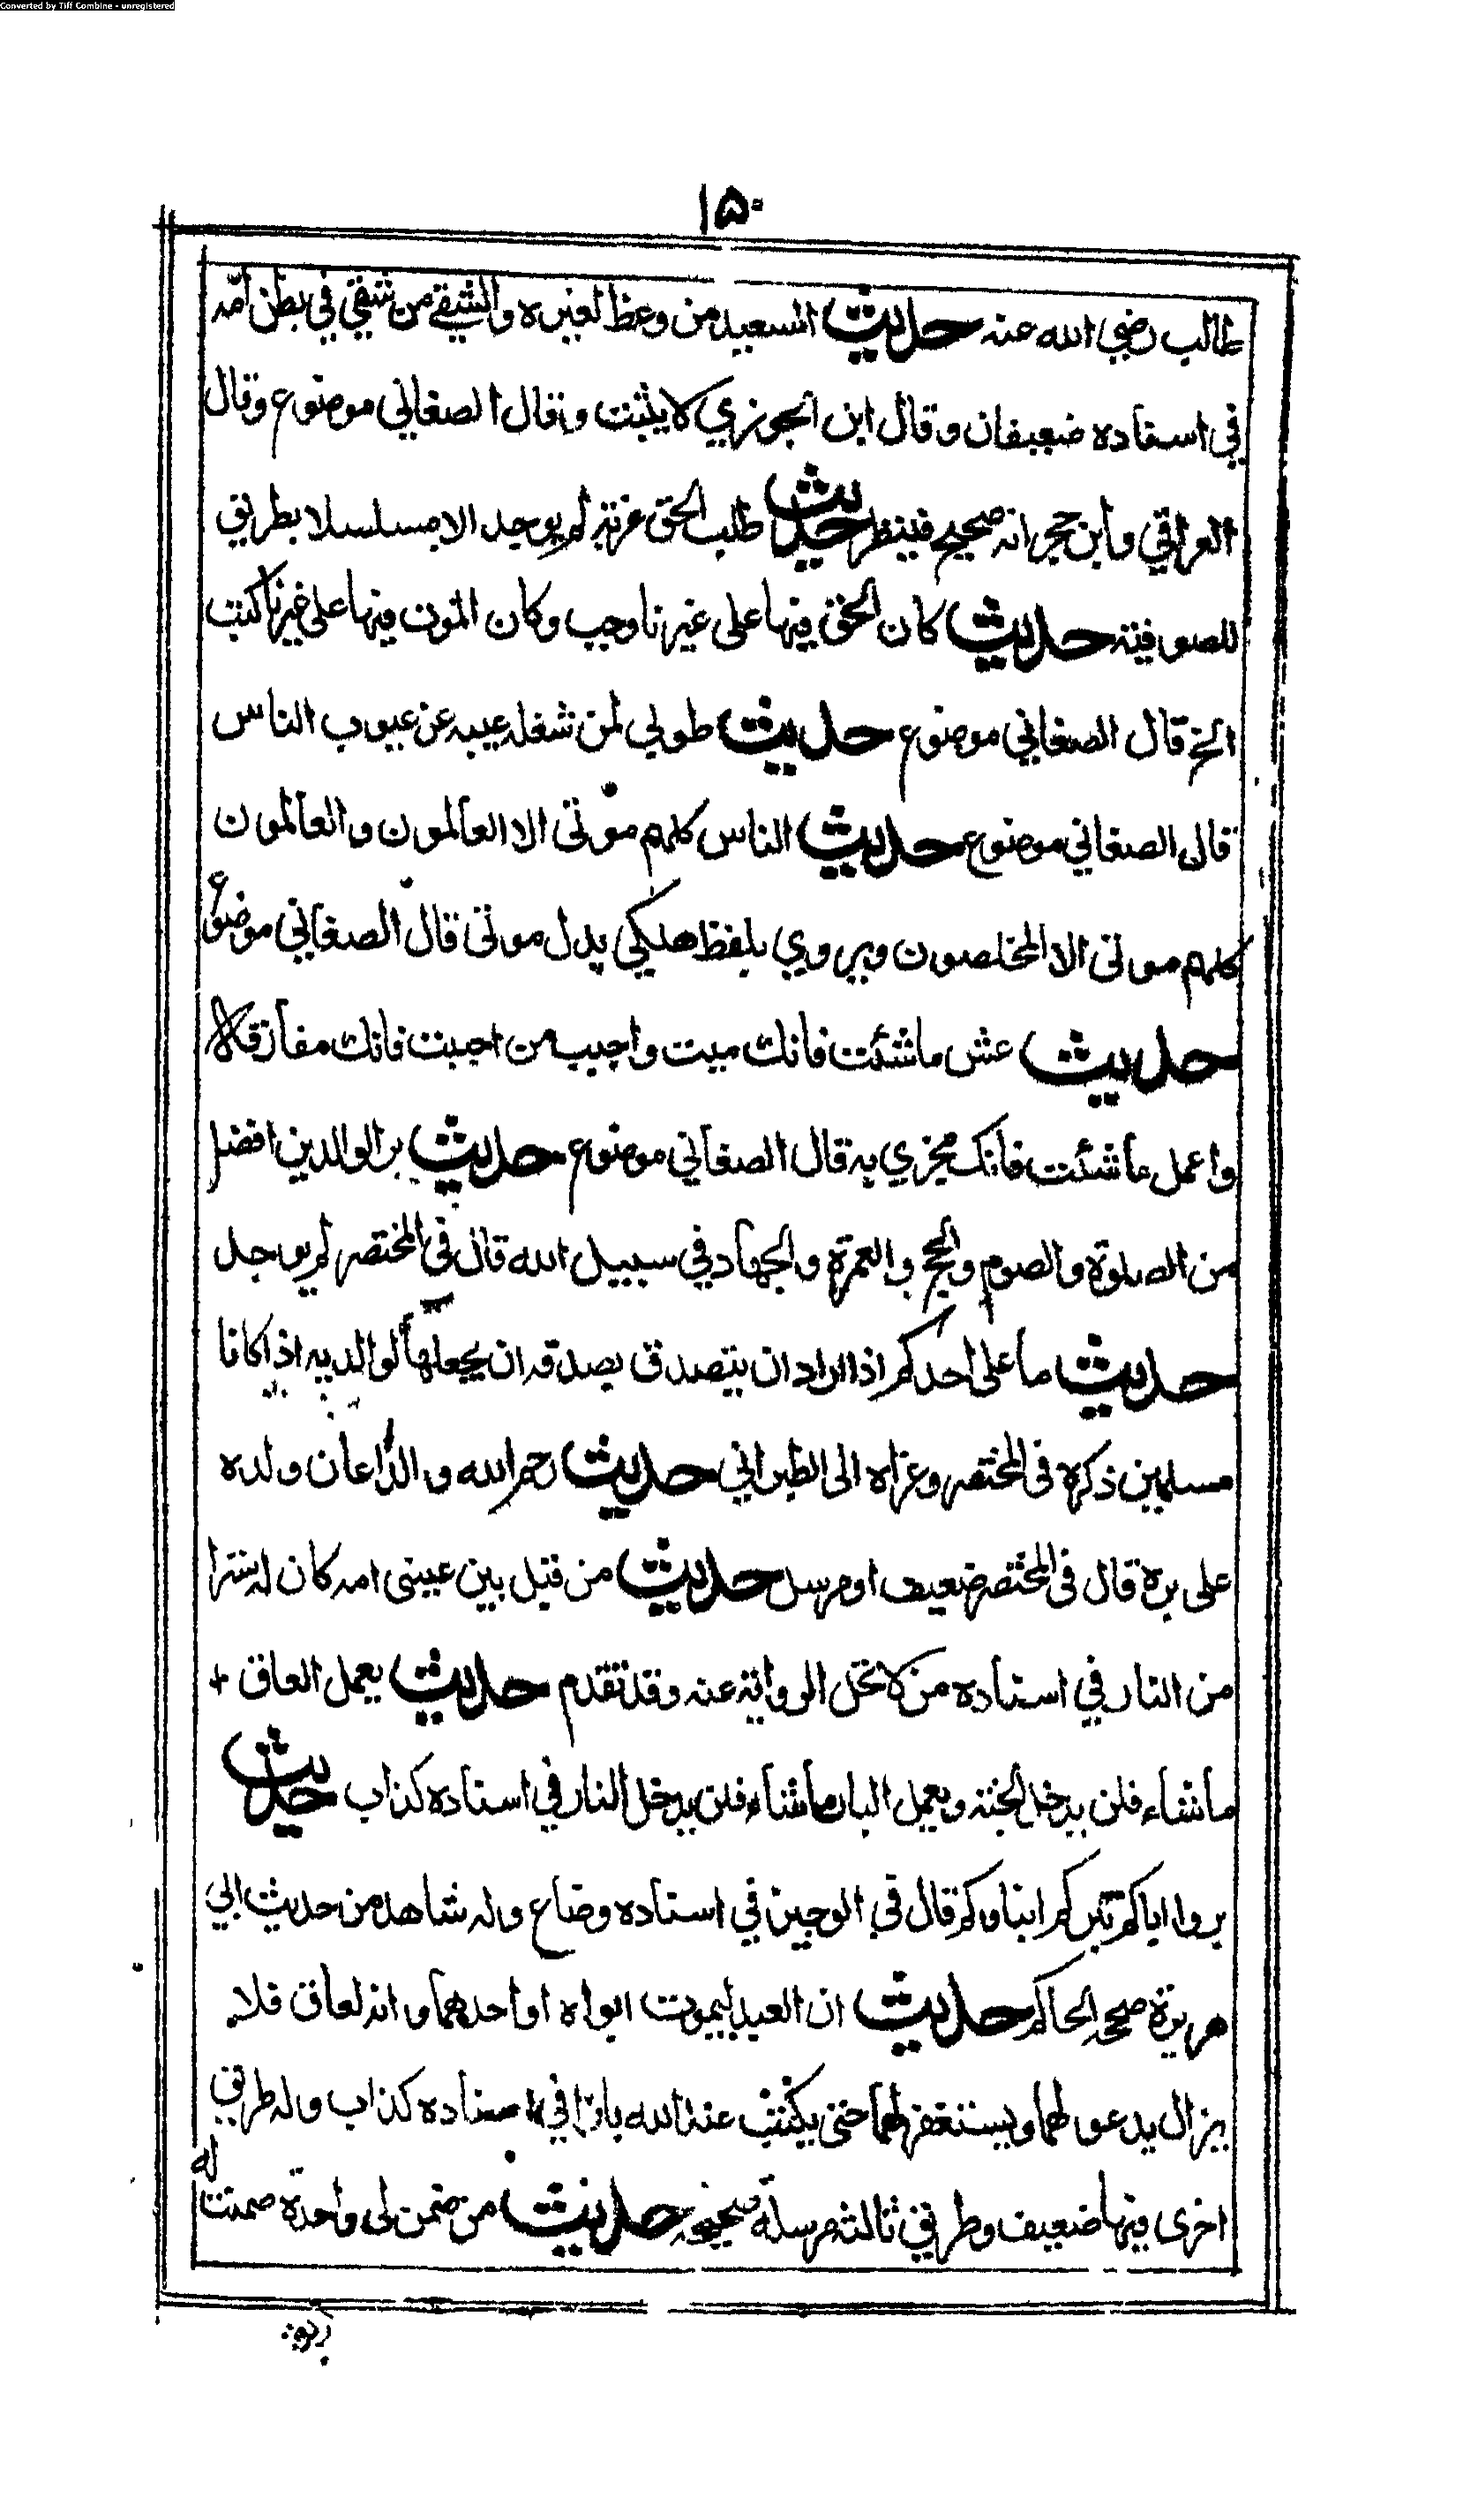 Converted by Tiff Combine - unregistered
۱۵۰
طالب رضي الله عنه حديث السعيد من وعظ لغيره والشقي من شقي في بطن امّه
في اسناده ضعيفان وقال ابن الجوزي لا يثبت وقال الصغاني موضوع وقال
العراقي وابن حجر انه صحيح فينظر حديث طلب الحق غربة لم يوجد الا مسلسلا بطريق
للصوفية حديث كان الحق فيها على غيرنا وجب وكان الموت فيها على غيرنا كتب
الخ قال الصغاني موضوع حديث طوبي لمن شغله عيبه عن عيوب الناس
قال الصغاني موضوع حديث الناس كلهم موتى الا العالمون والعالمون
كلهم موتى الا المخلصون ويروي بلفظ هلكي بدل موتى قال الصغاني موضوع
حديث عش ما شئت فانك ميت واحبب من احببت فانك مفارقه
واعمل ما شئت فانك مجزي به قال الصغاني موضوع حديث بر الوالدين افضل
من الصلوة والصوم والحج والعمرة والجهاد في سبيل الله قال في المختصر لم يوجد
حديث ما على احدكم اذا اراد ان يتصدق بصدقه ان يجعلها لوالديه اذا كانا
مسلمين ذكره في المختصر وعزاه الى الطبراني حديث رحم الله والدا اعان ولده
على بره قال في المختصر ضعيف او مرسل حديث من قبل بين عيني امه كان له سترا
من النار في اسناده من لا تحل الرواية عنه وقد تقدم حديث يعمل العاق +
ما شاء فلن يدخل الجنة ويعمل البار ما شاء فلن يدخل النار في اسناده كذاب حديث
بروا اباكم تبركم ابناوكم قال في الوجيز في اسناده وضاع وله شاهد من حديث ابي
هريرة صححه الحاكم حديث ان العبد ليموت ابواه او احدهما وانه لعاق فلا
يزال يدعو لهما ويستغفر لهما حتى يكتب عند الله بارا في اسناده كذاب وله طريق
اخرى فيها ضعيف وطريق ثالثة مرسلة صحيحه حديث من ضمن لي واحدة ضمنت له